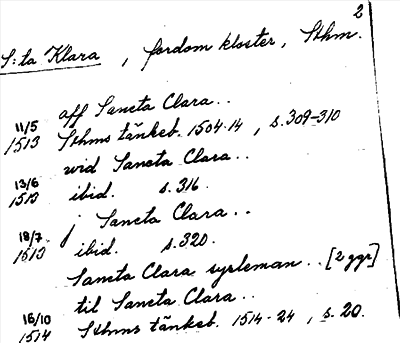 2
S:ta Klara, fordom kloster, Sthm.
aff Sancta Clara..
11/5 1513 Sthms tänkeb. 1504-14, s. 309-310
wid Sancta Clara..
13/6 1513 ibid. s. 316.
j Sancta Clara..
18/7 1513 ibid. s. 320.
Sancta Clara sysleman.. [2 ggr]
til Sancta Clara..
16/10 1514 Sthms tänkeb. 1514-24, s. 20.